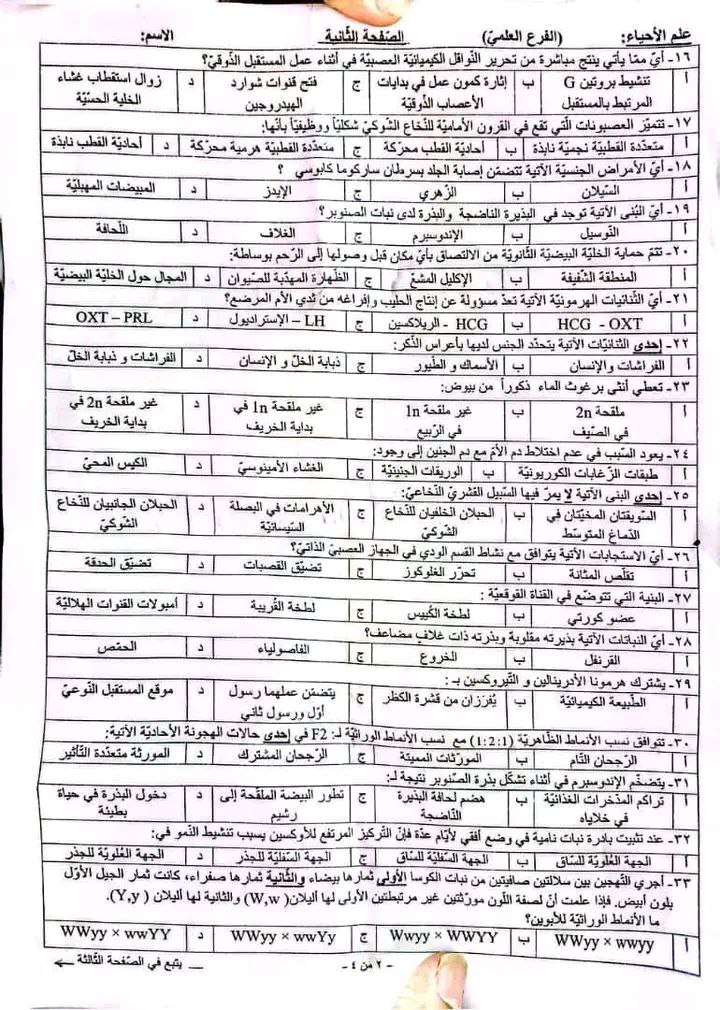 علم الأحياء: (الفرع العلمي) الصفحة الثانية الاسم:
١٦- أيّ ممّا يأتي ينتج مباشرة من تحرير النّواقل الكيميائيّة العصبيّة في أثناء عمل المستقبل الذّوقيّ؟
أ تنشيط بروتين G ب إثارة كمون عمل في بدايات ج فتح قنوات شوارد د زوال استقطاب غشاء
المرتبط بالمستقبل الأعصاب الذّوقيّة الهيدروجين الخلية الحسيّة
١٧- تتميّز العصبونات الّتي تقع في القرون الأماميّة للنّخاع الشّوكيّ شكليّاً ووظيفيّاً بأنّها:
أ متعدّدة القطبيّة نجميّة نابذة ب أحاديّة القطب محرّكة ج متعدّدة القطبيّة هرمية محرّكة د أحاديّة القطب نابذة
١٨- أيّ الأمراض الجنسيّة الآتية تتضمّن إصابة الجلد بسرطان ساركوما كابوسي ؟
أ السّيلان ب الزّهري ج الإيدز د المبيضات المهبليّة
١٩- أيّ البُنى الآتية توجد في البذيرة الناضجة والبذرة لدى نبات الصنوبر؟
أ النّوسيل ب الإندوسبرم ج الغلاف د اللّحافة
٢٠- تتمّ حماية الخليّة البيضيّة الثّانويّة من الالتصاق بأيّ مكان قبل وصولها إلى الرّحم بوساطة:
أ المنطقة الشّفيفة ب الإكليل المشعّ ج الظّهارة المهدّبة للصّيوان د المجال حول الخليّة البيضيّة
٢١- أيّ الثّنائيات الهرمونيّة الآتية تعدّ مسؤولة عن إنتاج الحليب وإفراغه من ثدي الأم المرضع؟
أ HCG - OXT ب HCG - الريلاكسين ج LH – الإستراديول د OXT – PRL
٢٢- إحدى الثنائيّات الآتية يتحدّد الجنس لديها بأعراس الذّكر:
أ الفراشات والإنسان ب الأسماك و الطّيور ج ذبابة الخلّ و الإنسان د الفراشات و ذبابة الخلّ
٢٣- تعطي أنثى برغوث الماء ذكوراً من بيوض:
أ ملقحة 2n ب غير ملقحة 1n ج غير ملقحة 1n في د غير ملقحة 2n في
في الصّيف في الرّبيع بداية الخريف بداية الخريف
٢٤- يعود السّبب في عدم اختلاط دم الأمّ مع دم الجنين إلى وجود:
أ طبقات الزّغابات الكوريونيّة ب الوريقات الجنينيّة ج الغشاء الأمينوسيّ د الكيس المحيّ
٢٥- إحدى البنى الآتية لا يمرّ فيها السّبيل القشريّ النّخاعيّ:
أ السّويقتان المخيّتان في ب الحبلان الخلفيان للنّخاع ج الأهرامات في البصلة د الحبلان الجانبيان للنّخاع
الدّماغ المتوسّط الشّوكيّ السّيسائيّة الشّوكيّ
٢٦- أيّ الاستجابات الآتية يتوافق مع نشاط القسم الودي في الجهاز العصبيّ الذّاتيّ؟
أ تقلّص المثانة ب تحرّر الغلوكوز ج تضيّق القصبات د تضيّق الحدقة
٢٧- البنية التي تتوضّع في القناة القوقعيّة :
أ عضو كورتي ب لطخة الكُييس ج لطخة القُريبة د أمبولات القنوات الهلاليّة
٢٨- أيّ النباتات الآتية بذيرته مقلوبة وبذرته ذات غلافٍ مضاعف؟
أ القرنفل ب الخروع ج الفاصولياء د الحمّص
٢٩- يشترك هرمونا الأدرينالين و التّيروكسين بـ :
أ الطّبيعة الكيميائيّة ب يُفرَزان من قشرة الكظر ج يتضمّن عملهما رسول د موقع المستقبل النّوعيّ
أوّل ورسول ثاني
٣٠- تتوافق نسب الأنماط الظّاهريّة (1:2:1) مع نسب الأنماط الوراثيّة لـ: F2 في إحدى حالات الهجونة الأحاديّة الآتية:
أ الرّجحان التّام ب المورّثات المميتة ج الرّجحان المشترك د المورثة متعدّدة التّأثير
٣١- يتضخّم الإندوسبرم في أثناء تشكّل بذرة الصّنوبر نتيجة لـ:
أ تراكم المدّخرات الغذائيّة ب هضم لحافة البذيرة ج تطور البيضة الملقّحة إلى د دخول البذرة في حياة
في خلاياه النّاضجة رشيم بطيئة
٣٢- عند تثبيت بادرة نبات نامية في وضع أفقي لأيّام عدّة فإنّ التّركيز المرتفع للأوكسين يسبب تنشيط النّمو في:
أ الجهة العُلويّة للسّاق ب الجهة السّفليّة للسّاق ج الجهة السّفليّة للجذر د الجهة العُلويّة للجذر
٣٣- أجري التّهجين بين سلالتين صافيتين من نبات الكوسا الأولى ثمارها بيضاء والثّانية ثمارها صفراء، كانت ثمار الجيل الأوّل
بلون أبيض. فإذا علمت أنّ لصفة اللّون مورّثتين غير مرتبطتين الأولى لها أليلان(W,w) والثانية لها أليلان (Y,y).
ما الأنماط الوراثيّة للأبوين؟
أ WWyy × wwyy ب Wwyy × WWYY ج WWyy × wwYy د WWyy × wwYY
- ٢ من ٤ - يتبع في الصّفحة الثّالثة